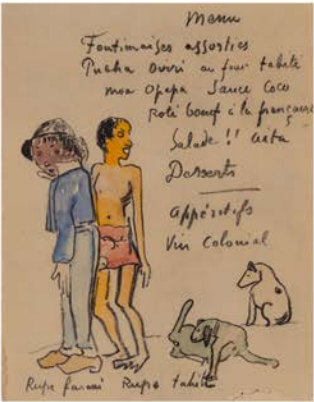 Menu
assorties
au four tahiti
moa opapa Sauce Coco
Roti boeuf à la française
Salade !! aita
Desserts
appéritifs
Vin Colonial
Rupe farani Rupe tahiti